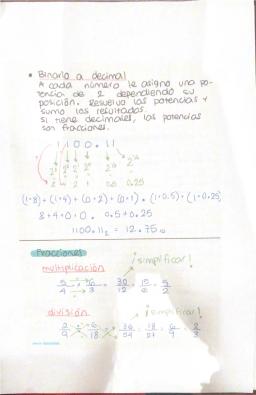 • Binario a decimal
A cada número le asigno una po-
tencia de 2 dependiendo su
posición. Resuelvo las potencias y
sumo los resultados.
Si tiene decimales, las potencias
son fracciones.
1100.11
8 4 2 1 0.5 0.25
(1·8)+(1·4)+(0·2)+(0·1).(1·0.5)+(1·0.25)
8+4+0+0 . 0.5+0.25
1100.11₂ = 12.75₁₀
Fracciones
multiplicación ¡simplificar!
5/4 × 6/3 = 30/12 = 15/6 = 5/2
división ¡simplificar!
2/9 ÷ 6/18 = 36/54 = 18/27 = 6/9 = 2/3